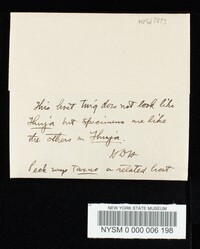 This host twig does not look like
Thuja but specimens are like
the others on Thuja.
HDH
Peck says Taxus or related host
NEW YORK STATE MUSEUM
NYSM 0 000 006 198